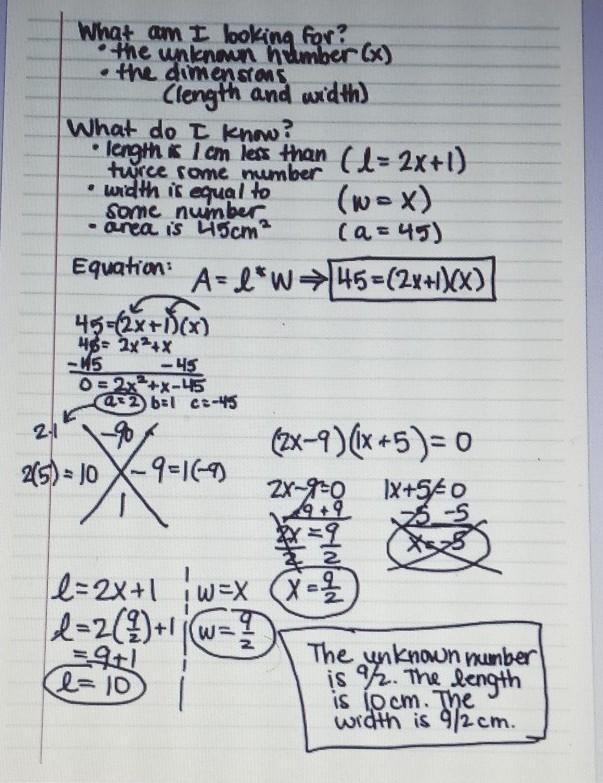 What am I looking for?
• the unknown number (x)
• the dimensions
(length and width)
What do I know?
• length is 1 cm less than
twice some number (l = 2x+1)
• width is equal to
some number (w = x)
• area is 45cm² (a = 45)
Equation: A = l * W ⇒ 45=(2x+1)(x)
45=(2x+1)(x)
45= 2x²+x
-45 -45
0 = 2x²+x-45
a=2 b=1 c=-45
2·1
-90
2(5) = 10 -9=1(-9)
1
(2x-9)(1x+5)= 0
2x-9=0 1x+5≠0
+9 +9 -5 -5
2x = 9 x=-5
2 2
x = 9/2
l = 2x+1 w=x
l=2(9/2)+1 w= 9/2
= 9+1
l= 10
The unknown number
is 9/2. The length
is 10cm. The
width is 9/2cm.